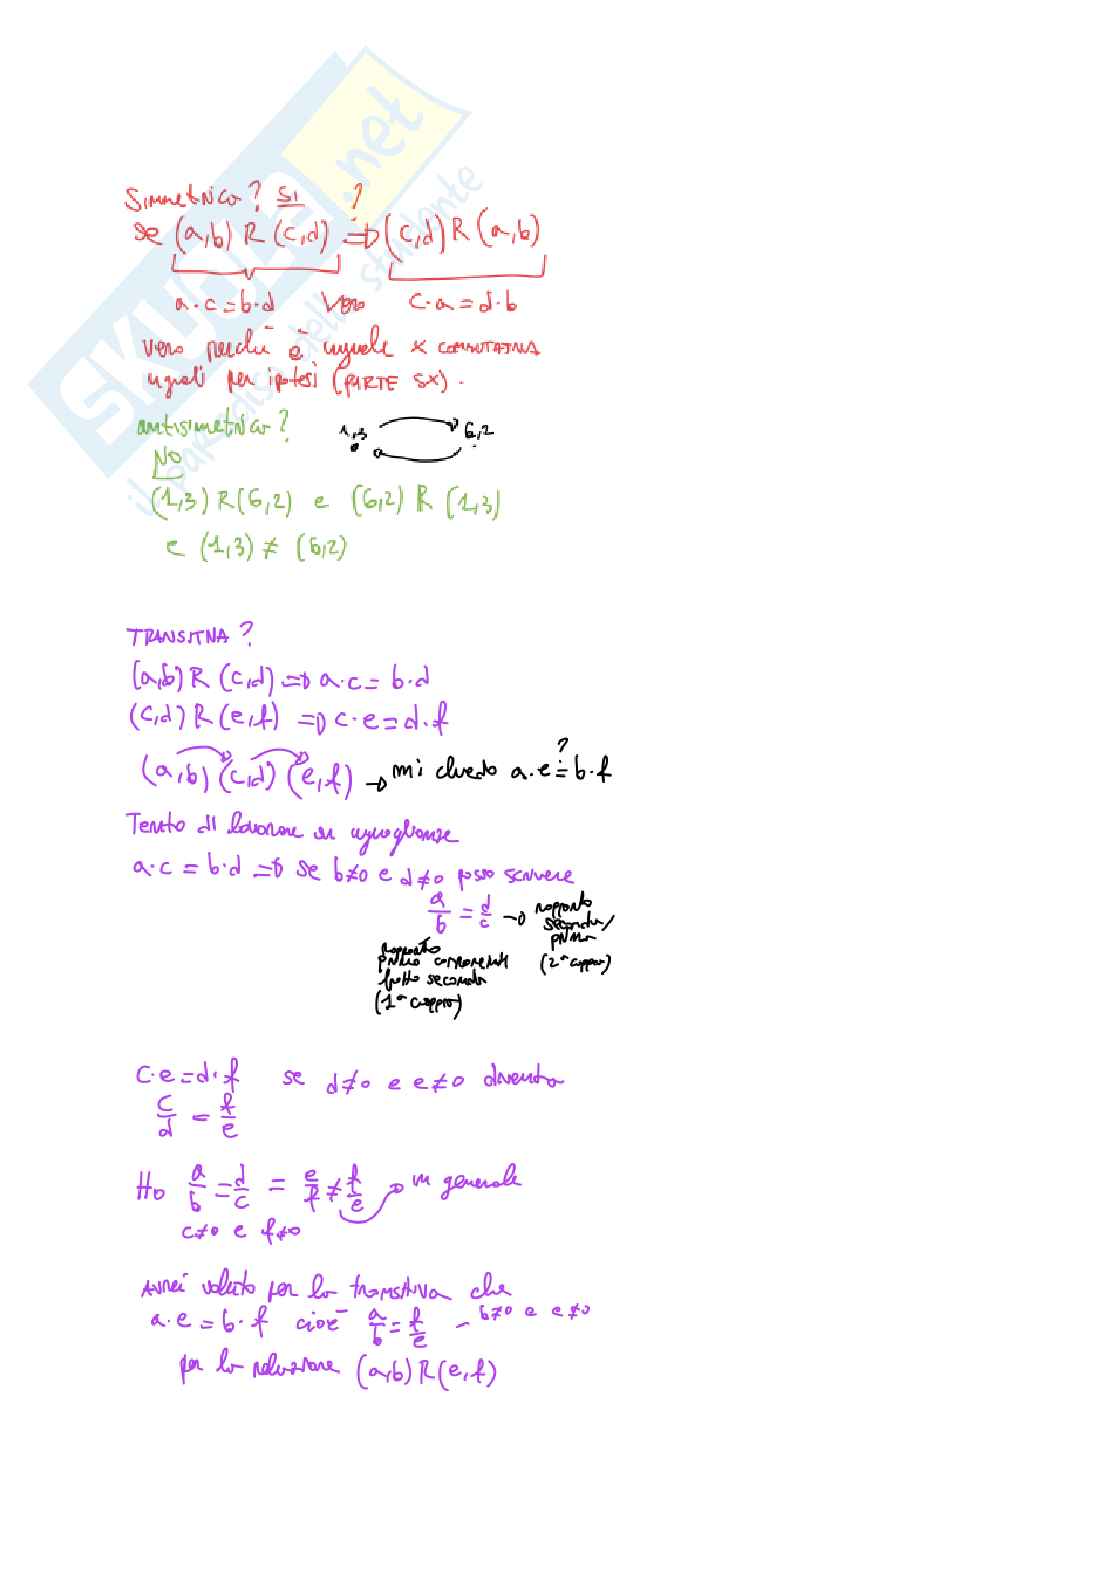 SKUOLA.net
il paradiso dello studente
Simmetrica? SI
se (a,b) R (c,d) ⇒? (c,d) R (a,b)
a·c=b·d Vero c·a=d·b
Vero perché è uguale x COMMUTATIVA
uguali per ipotesi (PARTE SX).
antisimetrica?
1,3 6,2
NO
(1,3) R (6,2) e (6,2) R (1,3)
e (1,3) ≠ (6,2)
TRANSITIVA?
(a,b) R (c,d) ⇒ a·c = b·d
(c,d) R (e,f) ⇒ c·e = d·f
(a,b) (c,d) (e,f) → mi chiedo a·e =? b·f
Tento di lavorare su uguaglianze
a·c = b·d ⇒ se b≠0 e d≠0 posso scrivere
a/b = d/c → rapporto
seconda/
prima
(2ª coppia)
rapporto
prima componente
fratto seconda
(1ª coppia)
c·e=d·f se d≠0 e e≠0 diventa
c/d = f/e
Ho a/b = d/c = e/f ≠ f/e → in generale
c≠0 e f≠0
Avrei voluto per la transitiva che
a·e = b·f cioè a/b = f/e - b≠0 e e≠0
per la relazione (a,b) R (e,f)